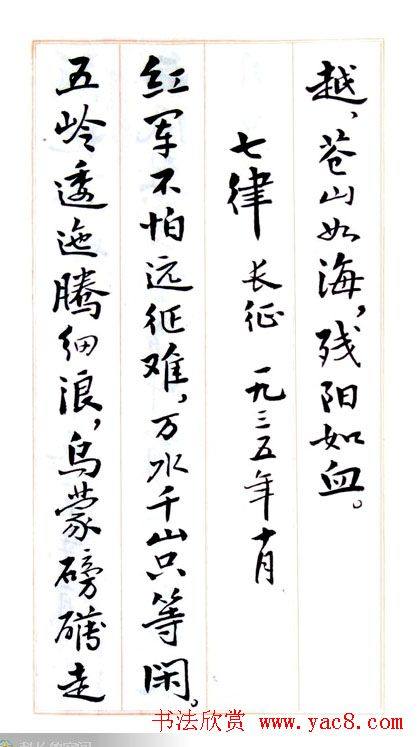 越，苍山如海，残阳如血。
七律 长征 一九三五年十月
红军不怕远征难，万水千山只等闲。
五岭逶迤腾细浪，乌蒙磅礴走
书法欣赏 www.yac8.com